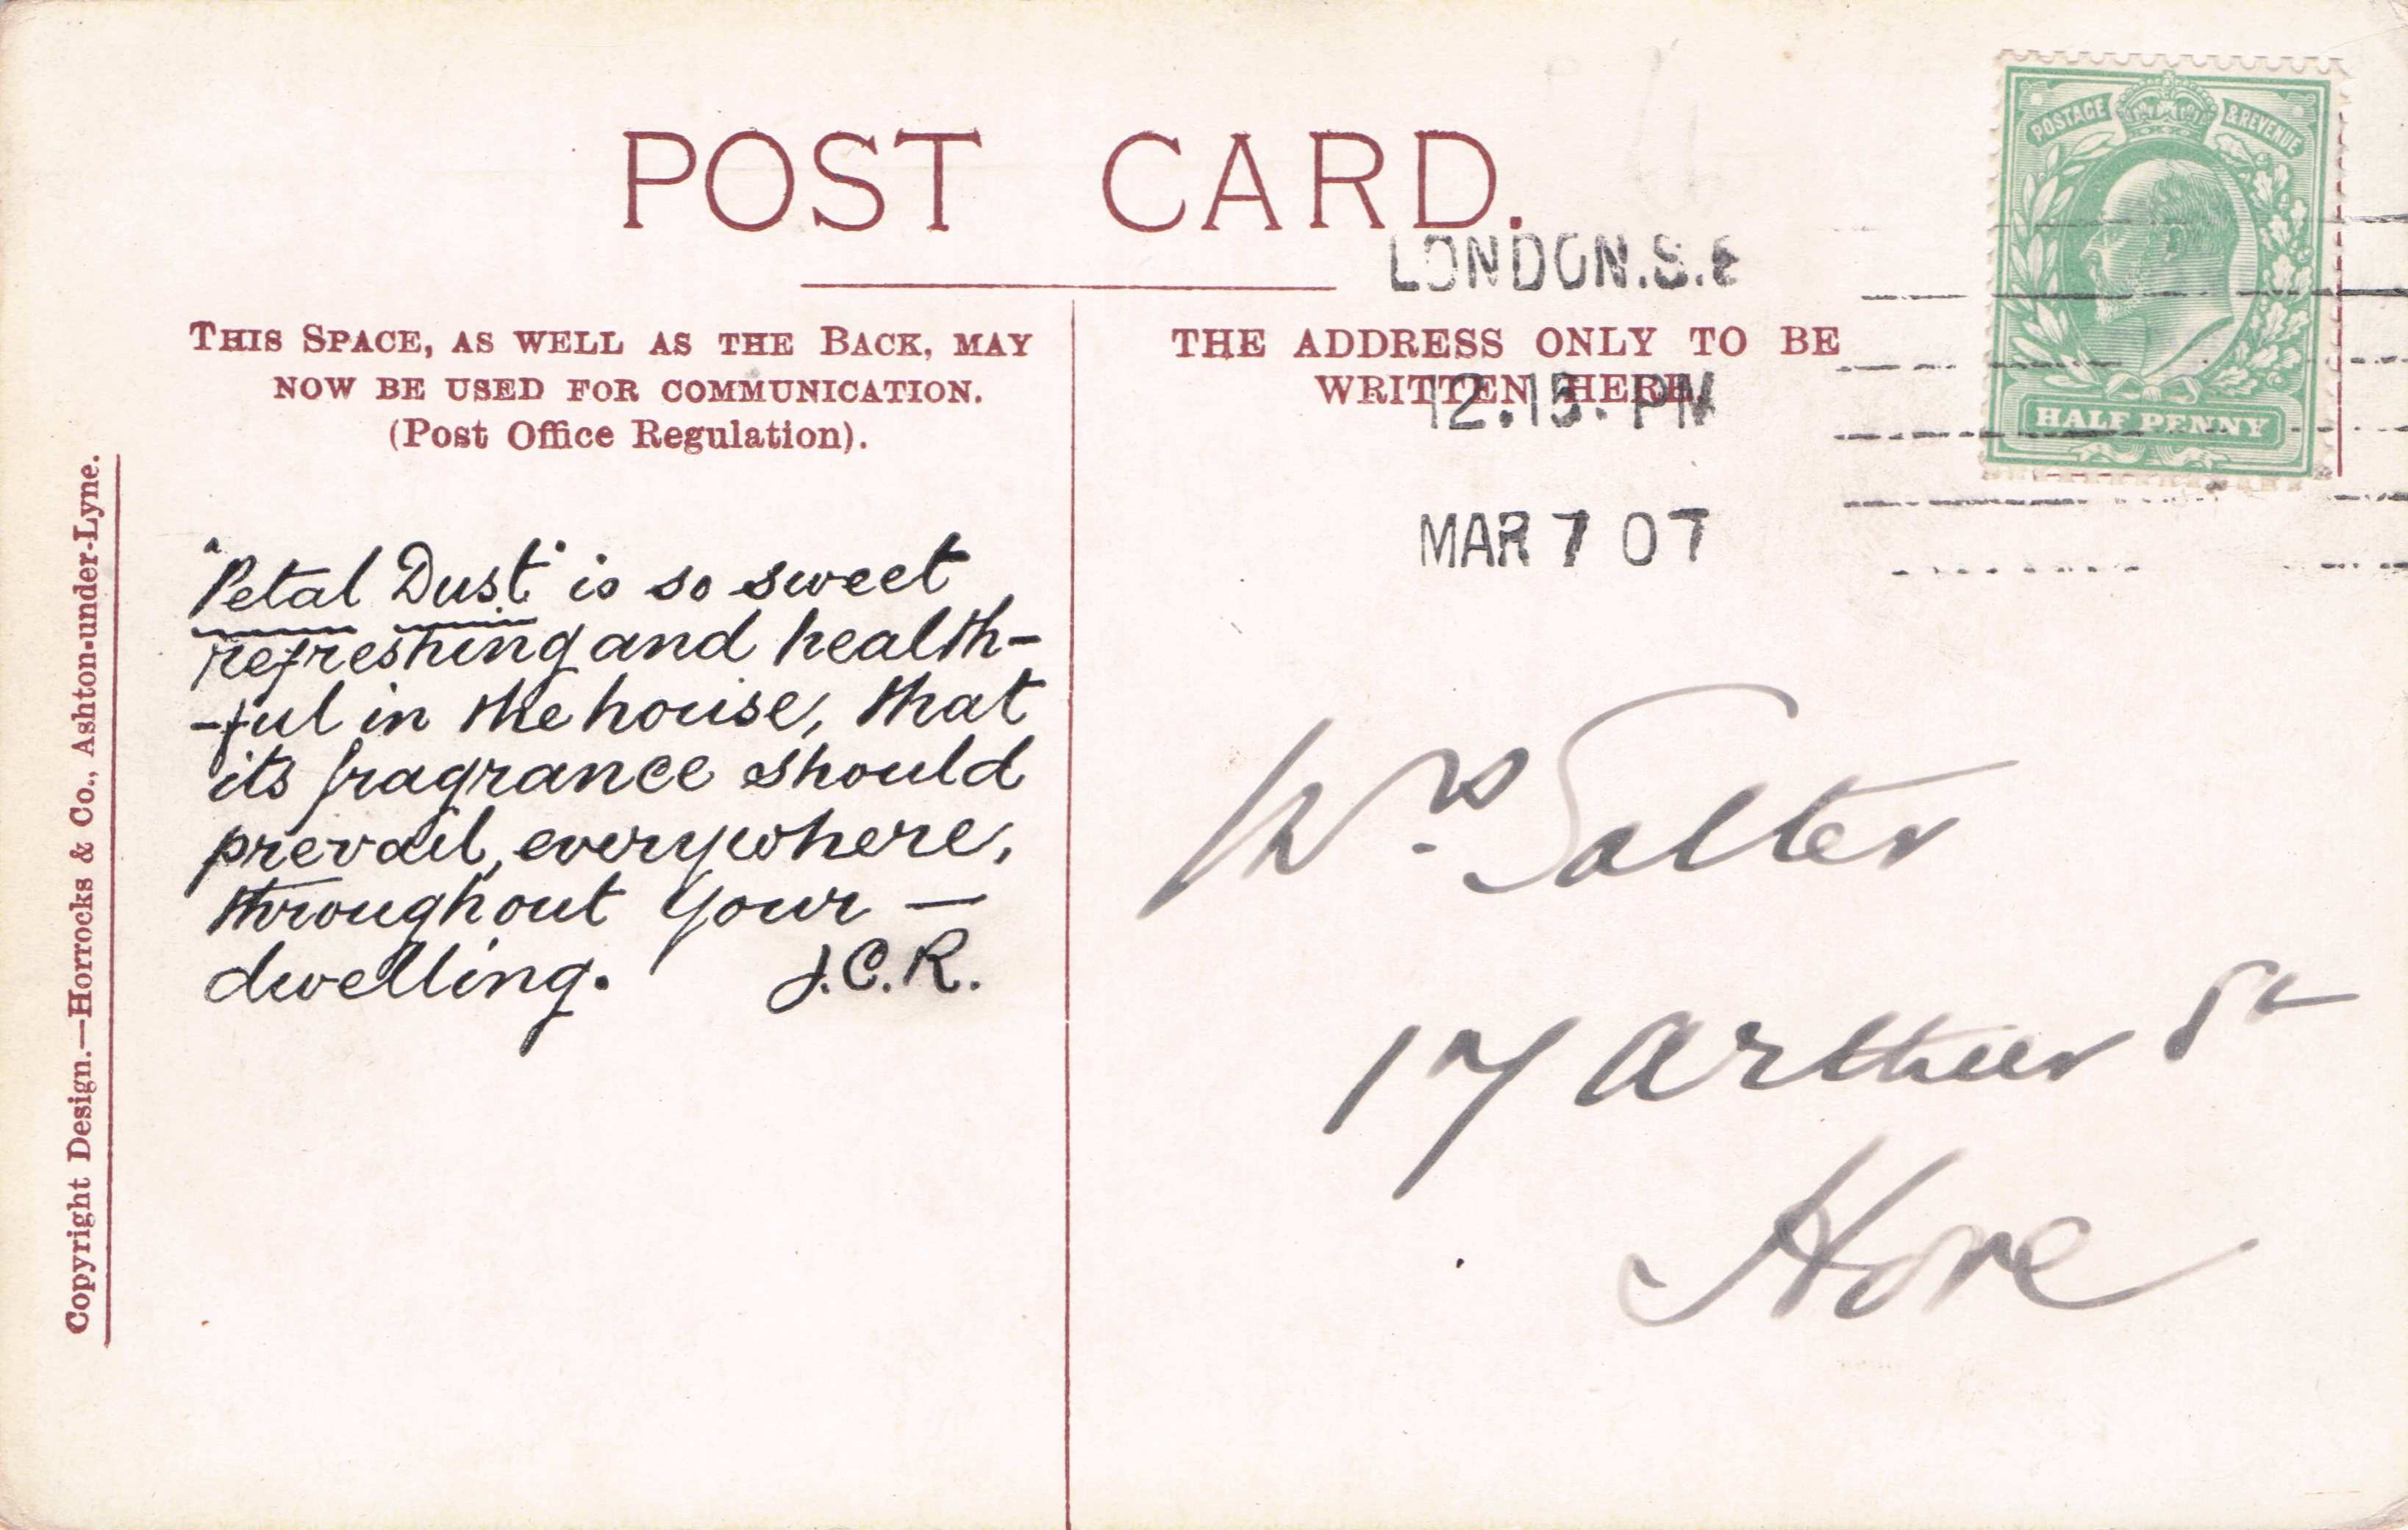 POST CARD.
LONDON.S.E
12.15. PM
MAR 7 07
POSTAGE & REVENUE
HALF PENNY
THIS SPACE, AS WELL AS THE BACK, MAY
NOW BE USED FOR COMMUNICATION.
(Post Office Regulation).
THE ADDRESS ONLY TO BE
WRITTEN HERE.
"Petal Dust" is so sweet
refreshing and health-
-ful in the house, that
its fragrance should
prevail, everywhere,
throughout your —
dwelling. J.C.R.
Mrs. Salter
17 Arthur St
Hove
Copyright Design.—Horrocks & Co., Ashton-under-Lyne.